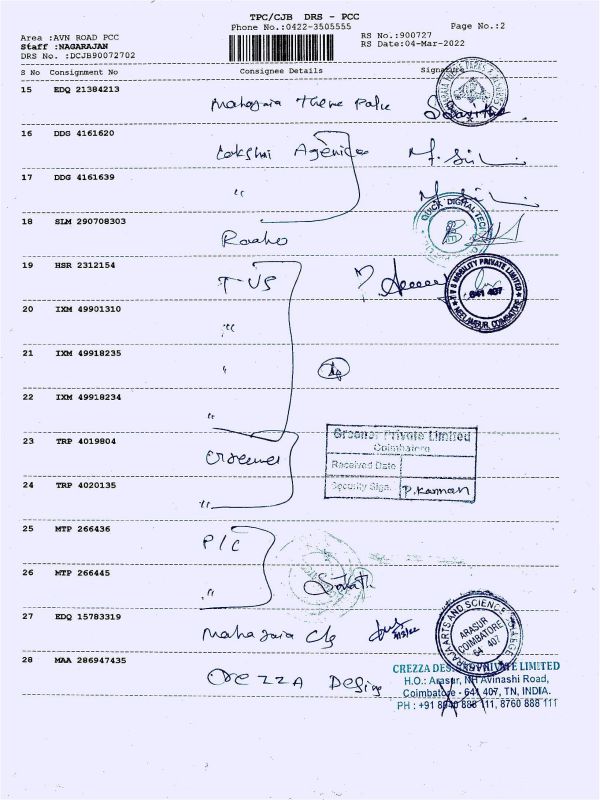 TPC/CJB DRS - PCC
Phone No.:0422-3505555 Page No.:2
Area :AVN ROAD PCC RS No.:900727
Staff :NAGARAJAN RS Date:04-Mar-2022
DRS No. :DCJB90072702
S No Consignment No Consignee Details Signature
15 EDQ 21384213
Maharaja Theme Park
16 DDG 4161620
Lakshmi Agencies
17 DDG 4161639
"
18 SLM 290708303
QUICK DIGITAL
19 HSR 2312154
TVS
TVS MOBILITY PRIVATE LIMITED
641 407
NEELAMBUR, COIMBATORE
20 IXM 49901310
"
21 IXM 49918235
"
22 IXM 49918234
"
23 TRP 4019804
Greener Private Limited
Coimbatore
Received Date
24 TRP 4020135
Security Sign. P.Kannan
"
25 MTP 266436
P/C
26 MTP 266445
"
27 EDQ 15783319
Maharaja Clg
ARTS AND SCIENCE
ARASUR
COIMBATORE
641 407
28 MAA 286947435
Crezza Design
CREZZA DESIGN PRIVATE LIMITED
H.O.: Arasur, NH Avinashi Road,
Coimbatore - 641 407, TN, INDIA.
PH : +91 8940 888 111, 8760 888 111